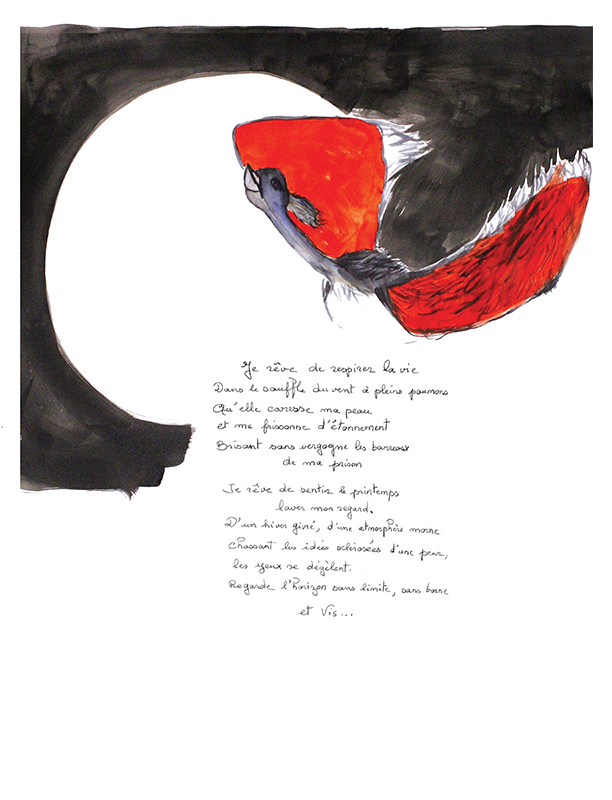 Je rêve de respirer la vie
Dans le souffle du vent à pleins poumons
Qu'elle caresse ma peau
et me frissonne d'étonnement
Brisant sans vergogne les barreaux
de ma prison
Je rêve de sentir le printemps
laver mon regard.
D'un hiver givré, d'une atmosphère morne
Chassant les idées sclérosées d'une peur,
les yeux se dégèlent.
Regarde l'horizon sans limite, sans borne
et Vis...